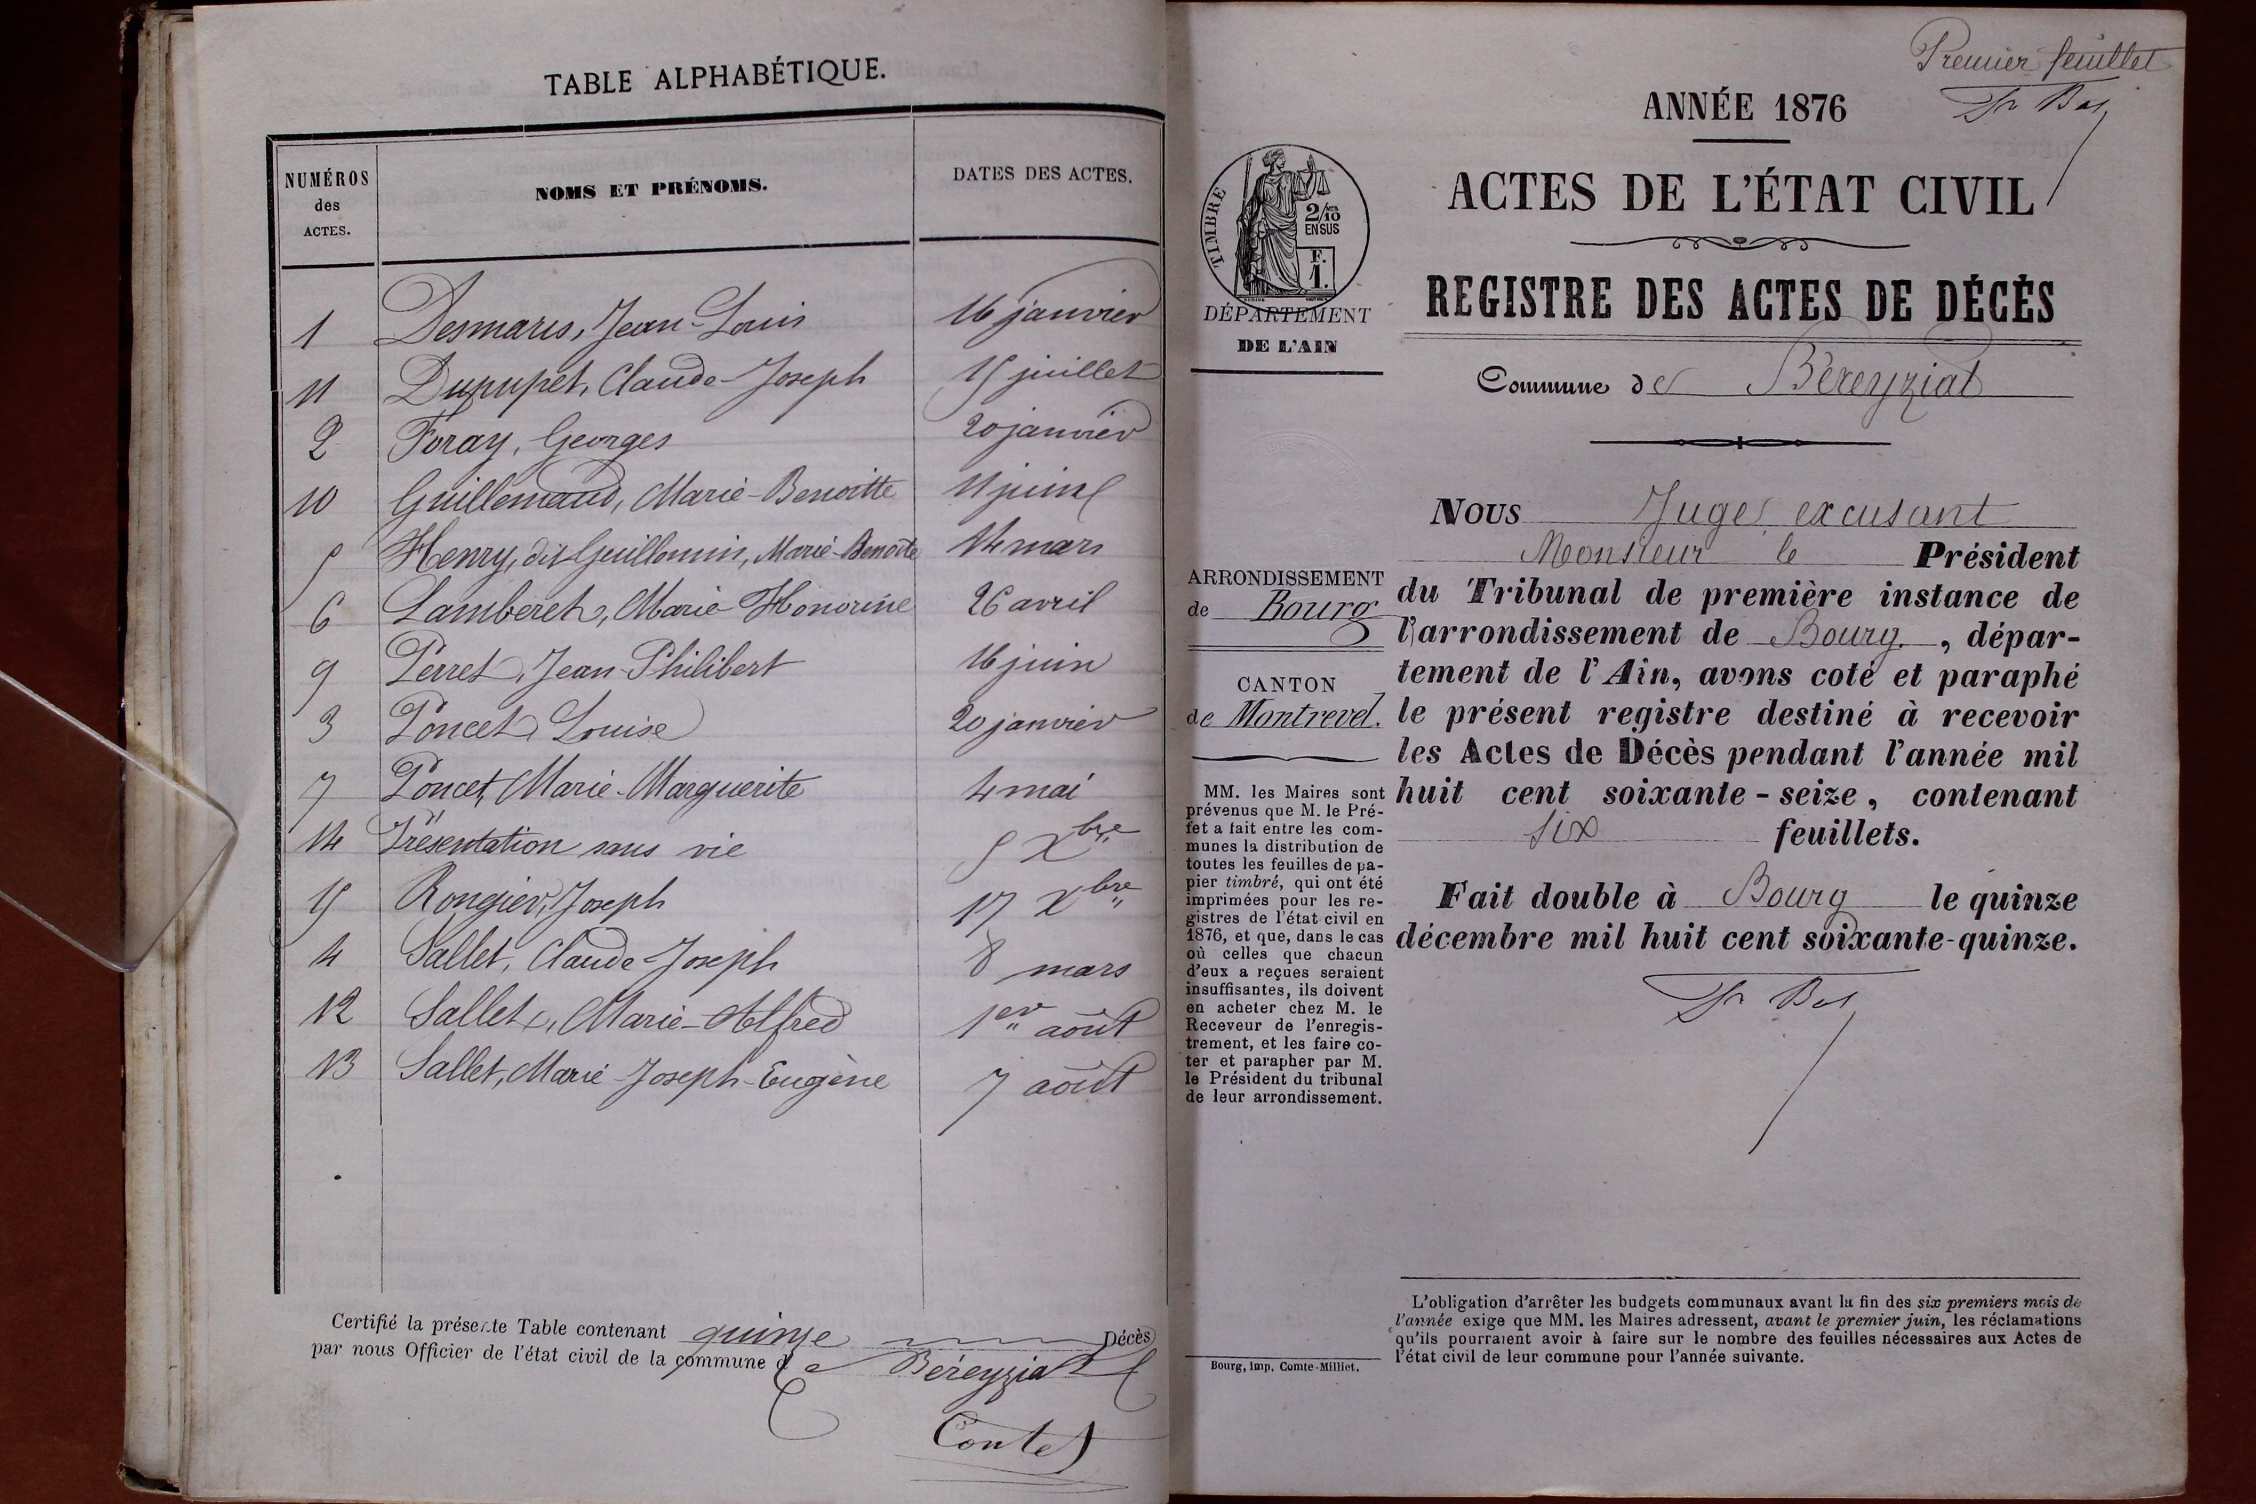 TABLE ALPHABÉTIQUE.
NUMÉROS des ACTES. NOMS ET PRÉNOMS. DATES DES ACTES.
1 Desmaris, Jean-Louis 16 janvier
11 Dupupet, Claude-Joseph 15 juillet
2 Foray, Georges 20 janvier
10 Guillemaud, Marie-Benoitte 11 juin
5 Henry, dit Guillemin, Marie-Benoite 14 mars
6 Lamberet, Marie Honorine 26 avril
9 Perret, Jean-Philibert 16 juin
3 Poncet, Louise 20 janvier
7 Poncet, Marie-Marguerite 4 mai
14 Présentation sans vie 5 Xbre
15 Rongier, Joseph 17 Xbre
4 Sallet, Claude-Joseph 8 mars
12 Sallet, Marie-Alfred 1er août
13 Sallet, Marie-Joseph-Eugène 7 août
Certifié la présente Table contenant quinze Décès
par nous Officier de l'état civil de la commune de Béreyziat
Contet
Premier feuillet
ANNÉE 1876
ACTES DE L'ÉTAT CIVIL
REGISTRE DES ACTES DE DÉCÈS
Commune de Béreyziat
TIMBRE
2/10
EN SUS
F.
1.
DÉPARTEMENT
DE L'AIN
ARRONDISSEMENT
de Bourg
CANTON
de Montrevel.
MM. les Maires sont
prévenus que M. le Pré-
fet a fait entre les com-
munes la distribution de
toutes les feuilles de pa-
pier timbré, qui ont été
imprimées pour les re-
gistres de l'état civil en
1876, et que, dans le cas
où celles que chacun
d'eux a reçues seraient
insuffisantes, ils doivent
en acheter chez M. le
Receveur de l'enregis-
trement, et les faire co-
ter et parapher par M.
le Président du tribunal
de leur arrondissement.
Bourg, imp. Comte-Milliet.
Nous Juge excusant
Monsieur le Président
du Tribunal de première instance de
l'arrondissement de Bourg, dépar-
tement de l'Ain, avons coté et paraphé
le présent registre destiné à recevoir
les Actes de Décès pendant l'année mil
huit cent soixante-seize, contenant
six feuillets.
Fait double à Bourg le quinze
décembre mil huit cent soixante-quinze.
L'obligation d'arrêter les budgets communaux avant la fin des six premiers mois de
l'année exige que MM. les Maires adressent, avant le premier juin, les réclamations
qu'ils pourraient avoir à faire sur le nombre des feuilles nécessaires aux Actes de
l'état civil de leur commune pour l'année suivante.